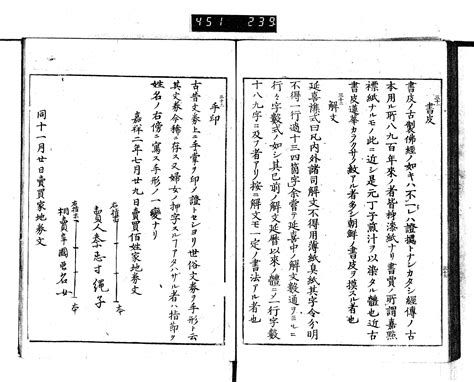 451 239
書皮
書皮ノ古製佛經ノ如キハ不一レハ證據トナシカタシ經傳ノ古
本用ル所八九百年來ノ者皆栁漆紙ナリ書賈ノ所謂嘉㸃
標紙ナルモノ此ニ近シ是元丁子煎汁ヲ以染タル體也近古
書皮蓮華カラクサリ紋アル者多シ朝鮮ノ書皮ヲ摸スル者也
解文
延喜様式曰凡内外諸司解文不得用薄紙臭紙其字令分明
不得一行過十三四箇字余嘗テ延喜中ノ解文數通ヲミルニ
行々字數式ノ如シ其已前ノ解文延曆以來ノ體ニ一行字數
十八九字ニ及フ者アリ按ニ解文モ一定ノ書法アル者也
手印
古昔文券上ニ手掌ヲ印ノ證トセシヨリ世俗文券ヲ手形ト云
其文券今稀ニ存ス又婦女ノ押字スル了アタハサル者ハ指印ヲ
姓名ノ右傍ニ寫ス手形ノ一變ナリ
嘉祥二年七月廿九日賣買佰姓家地券文
右指
賣人秦忌寸縄子
本
右指
相賣
同十一月廿日賣買家地券文